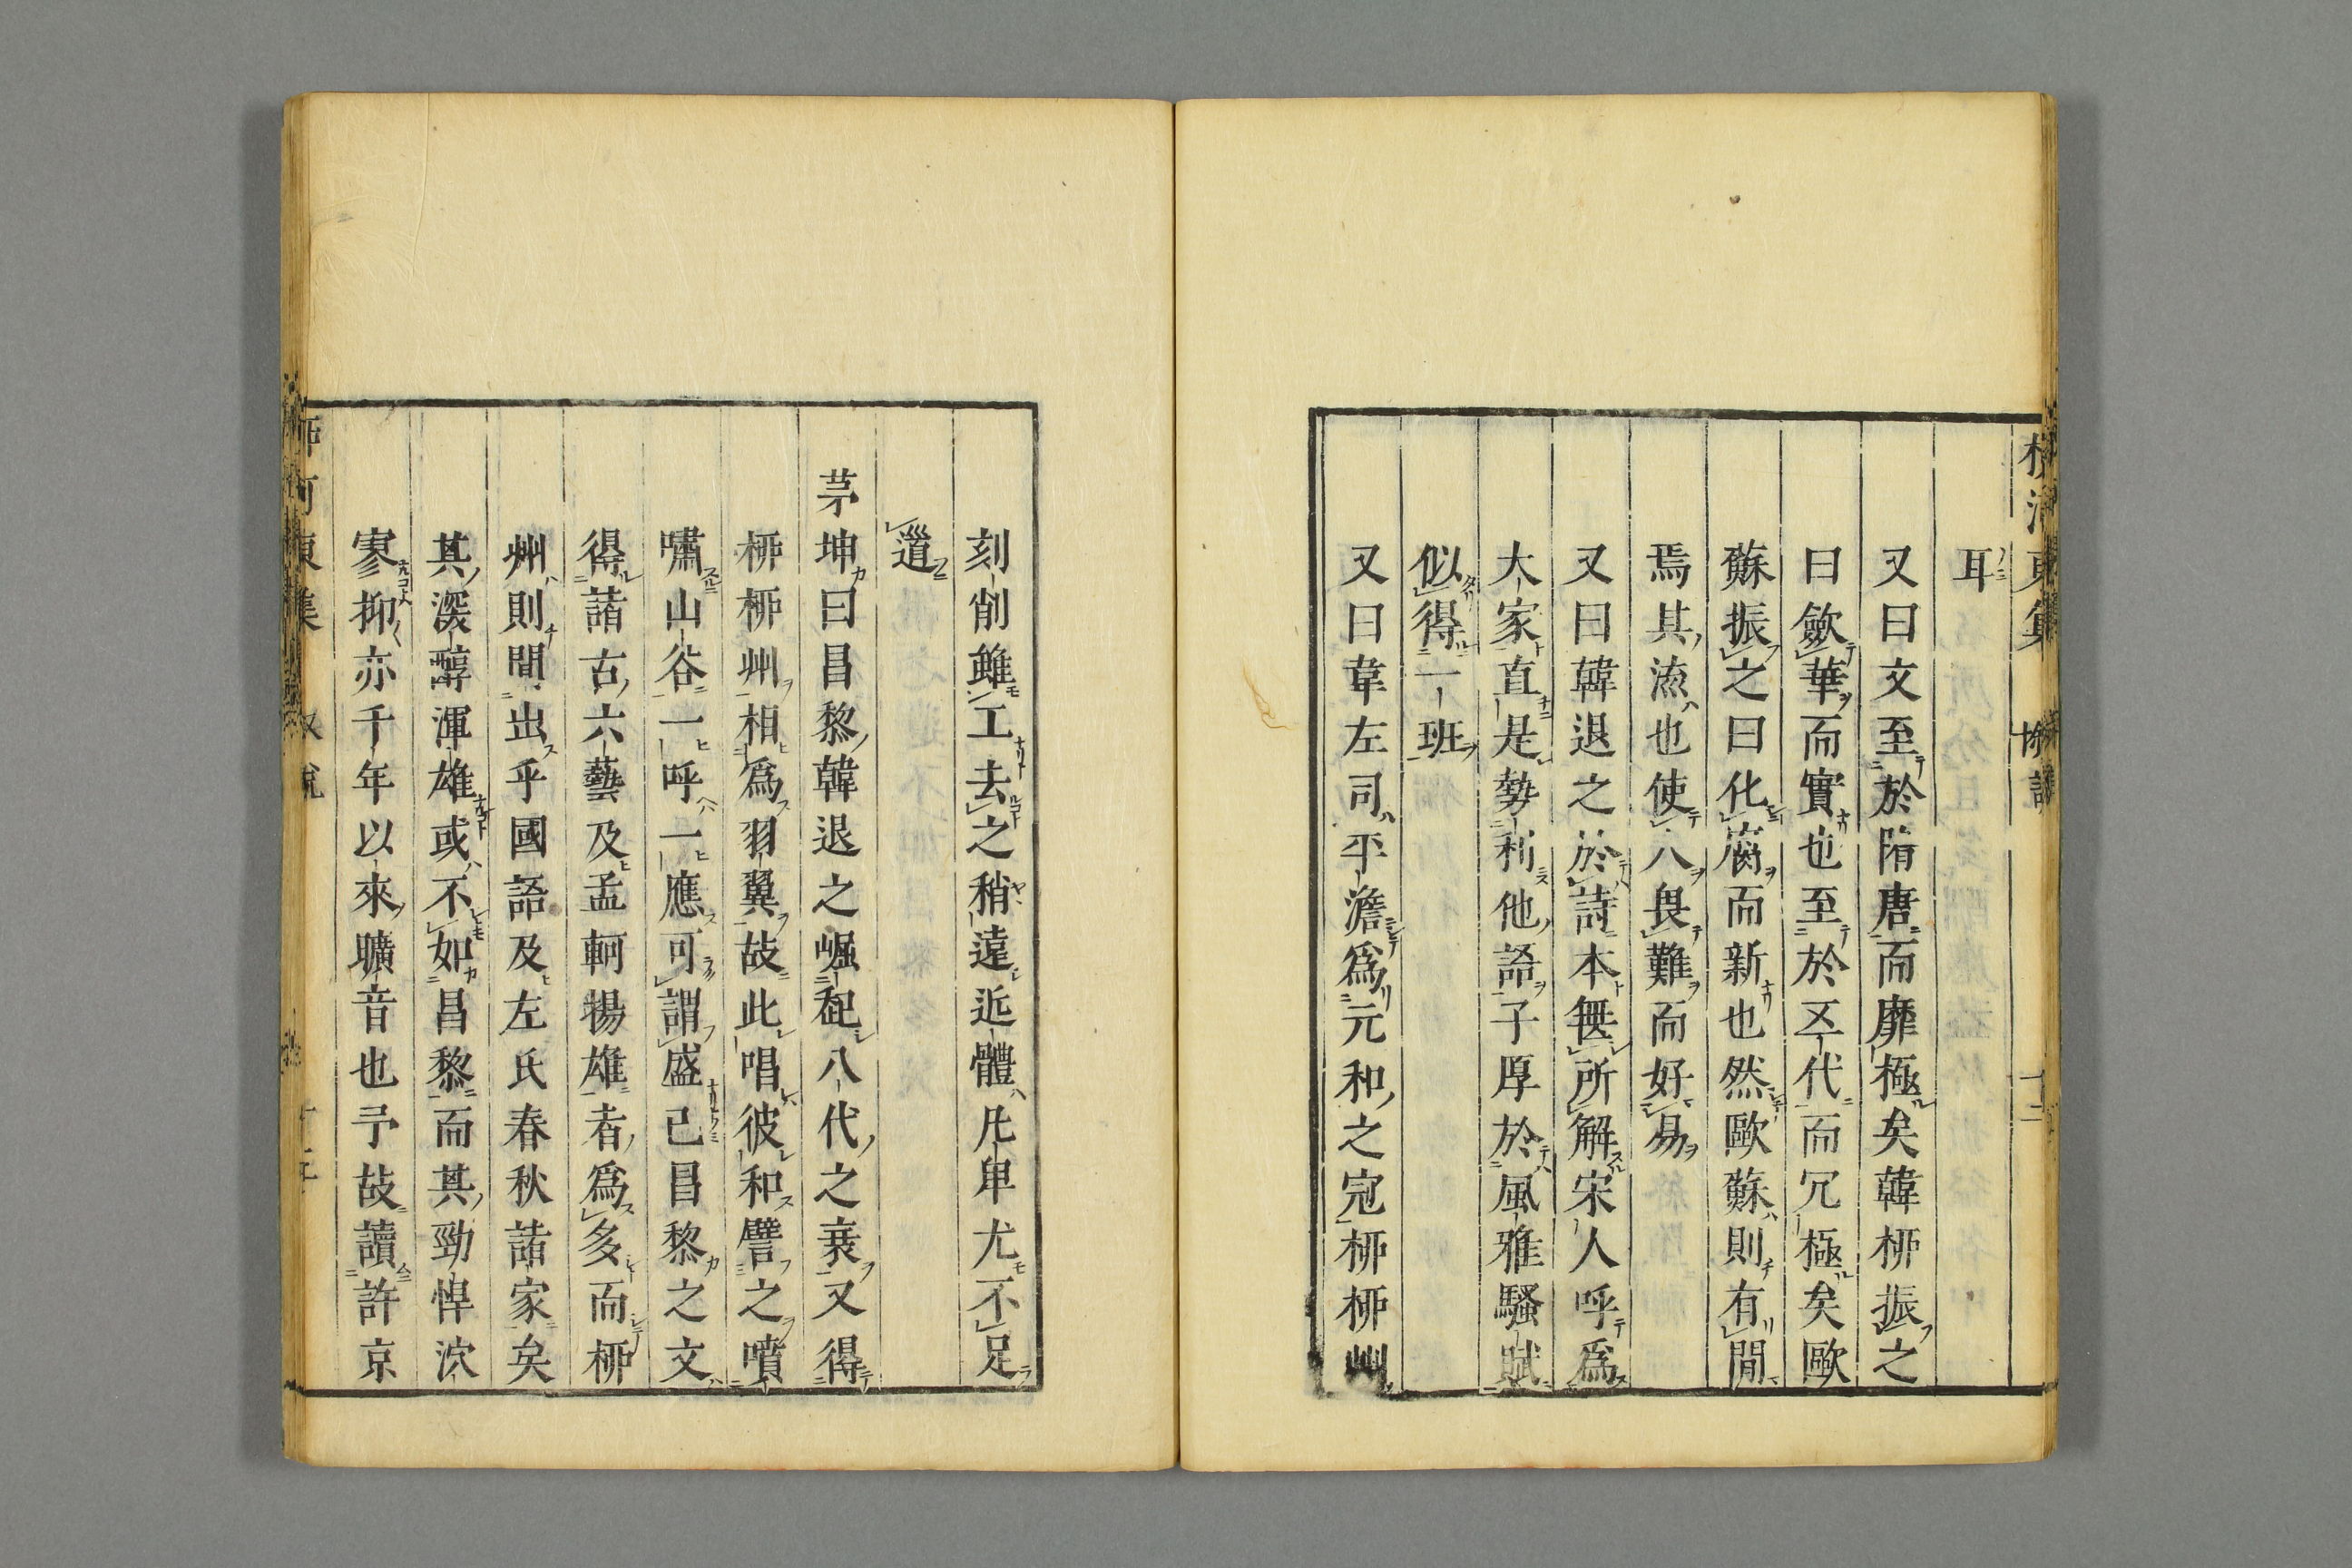 柳河東集 附說 十二
耳
又曰文至於隋唐而靡極矣韓柳振之
曰斂華而實也至於五代而冗極矣歐
蘇振之曰化腐而新也然歐蘇則有間
焉其流也使人畏難而好易
又曰韓退之於詩本無所解宋人呼爲
大家直是勢利他語子厚於風雅騷賦
似得一班
又曰韋左司平澹爲元和之冠柳柳州
刻削雖工去之稍遠近體凡卑尤不足
道
茅坤曰昌黎韓退之崛起八代之衰又得
柳柳州相爲羽翼故此唱彼和譬之噴
嘯山谷一呼一應可謂盛已昌黎之文
得諸古六藝及孟軻揚雄者爲多而柳
州則間出乎國語及左氏春秋諸家矣
其深醇渾雄或不如昌黎而其勁悍泬
寥抑亦千年以來曠音也予故讀許京
柳河東集 叙說